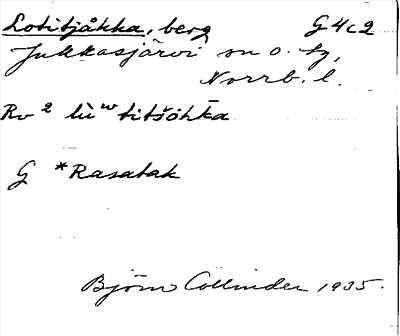 Lotitjåkka, berg G 4 c 2
Jukkasjärvi sn o. tg,
Norrb. l.
Rv 2
G *Rasatak
Björn Collinder 1935.